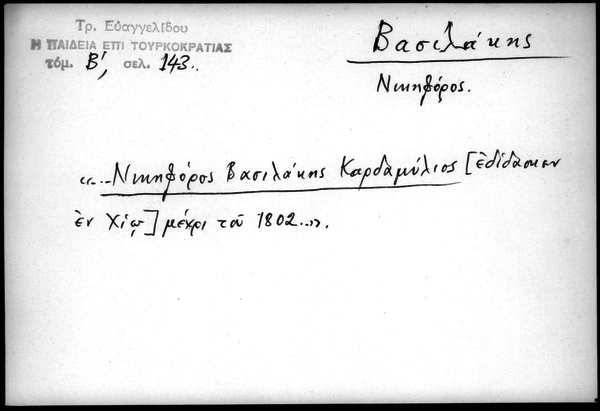 Τρ. Εὐαγγελίδου
Η ΠΑΙΔΕΙΑ ΕΠΙ ΤΟΥΡΚΟΚΡΑΤΙΑΣ
τόμ. Β΄, σελ. 143..
Βασιλάκης
Νικηφόρος.
«...Νικηφόρος Βασιλάκης Καρδαμύλιος [ἐδίδασκεν
ἐν Χίῳ] μέχρι τοῦ 1802...».